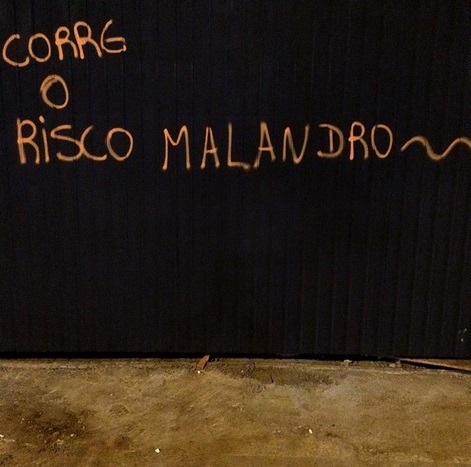 CORRE
O
RISCO MALANDRO~